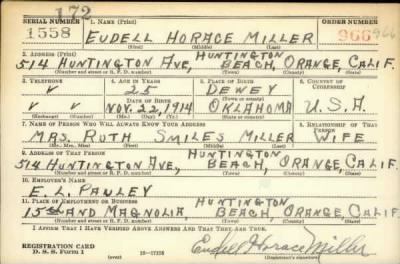 172
SERIAL NUMBER 1. NAME (Print) ORDER NUMBER
1558 EUDELL HORACE MILLER 966 966
(First) (Middle) (Last)
2. ADDRESS (Print)
HUNTINGTON
514 HUNTINGTON AVE, BEACH, ORANGE, CALIF.
(Number and street or R. F. D. number) (Town) (County) (State)
3. TELEPHONE 4. AGE IN YEARS 5. PLACE OF BIRTH 6. COUNTRY OF CITIZENSHIP
V 25 DEWEY
DATE OF BIRTH (Town or county)
V V NOV. 22, 1914 OKLAHOMA U.S.A.
(Exchange) (Number) (Mo.) (Day) (Yr.) (State or country)
7. NAME OF PERSON WHO WILL ALWAYS KNOW YOUR ADDRESS 8. RELATIONSHIP OF THAT PERSON
MRS. RUTH SMILES MILLER WIFE
(Mr., Mrs., Miss) (First) (Middle) (Last)
9. ADDRESS OF THAT PERSON
HUNTINGTON
514 HUNTINGTON AVE, BEACH, ORANGE, CALIF.
(Number and street or R. F. D. number) (Town) (County) (State)
10. EMPLOYER'S NAME
E. L. PAULEY
11. PLACE OF EMPLOYMENT OR BUSINESS
HUNTINGTON
AND MAGNOLIA, BEACH, ORANGE, CALIF.
(Number and street or R. F. D. number) (Town) (County) (State)
I AFFIRM THAT I HAVE VERIFIED ABOVE ANSWERS AND THAT THEY ARE TRUE.
REGISTRATION CARD
D. S. S. Form 1 (over) Eudell Horace Miller
(Registrant's signature)